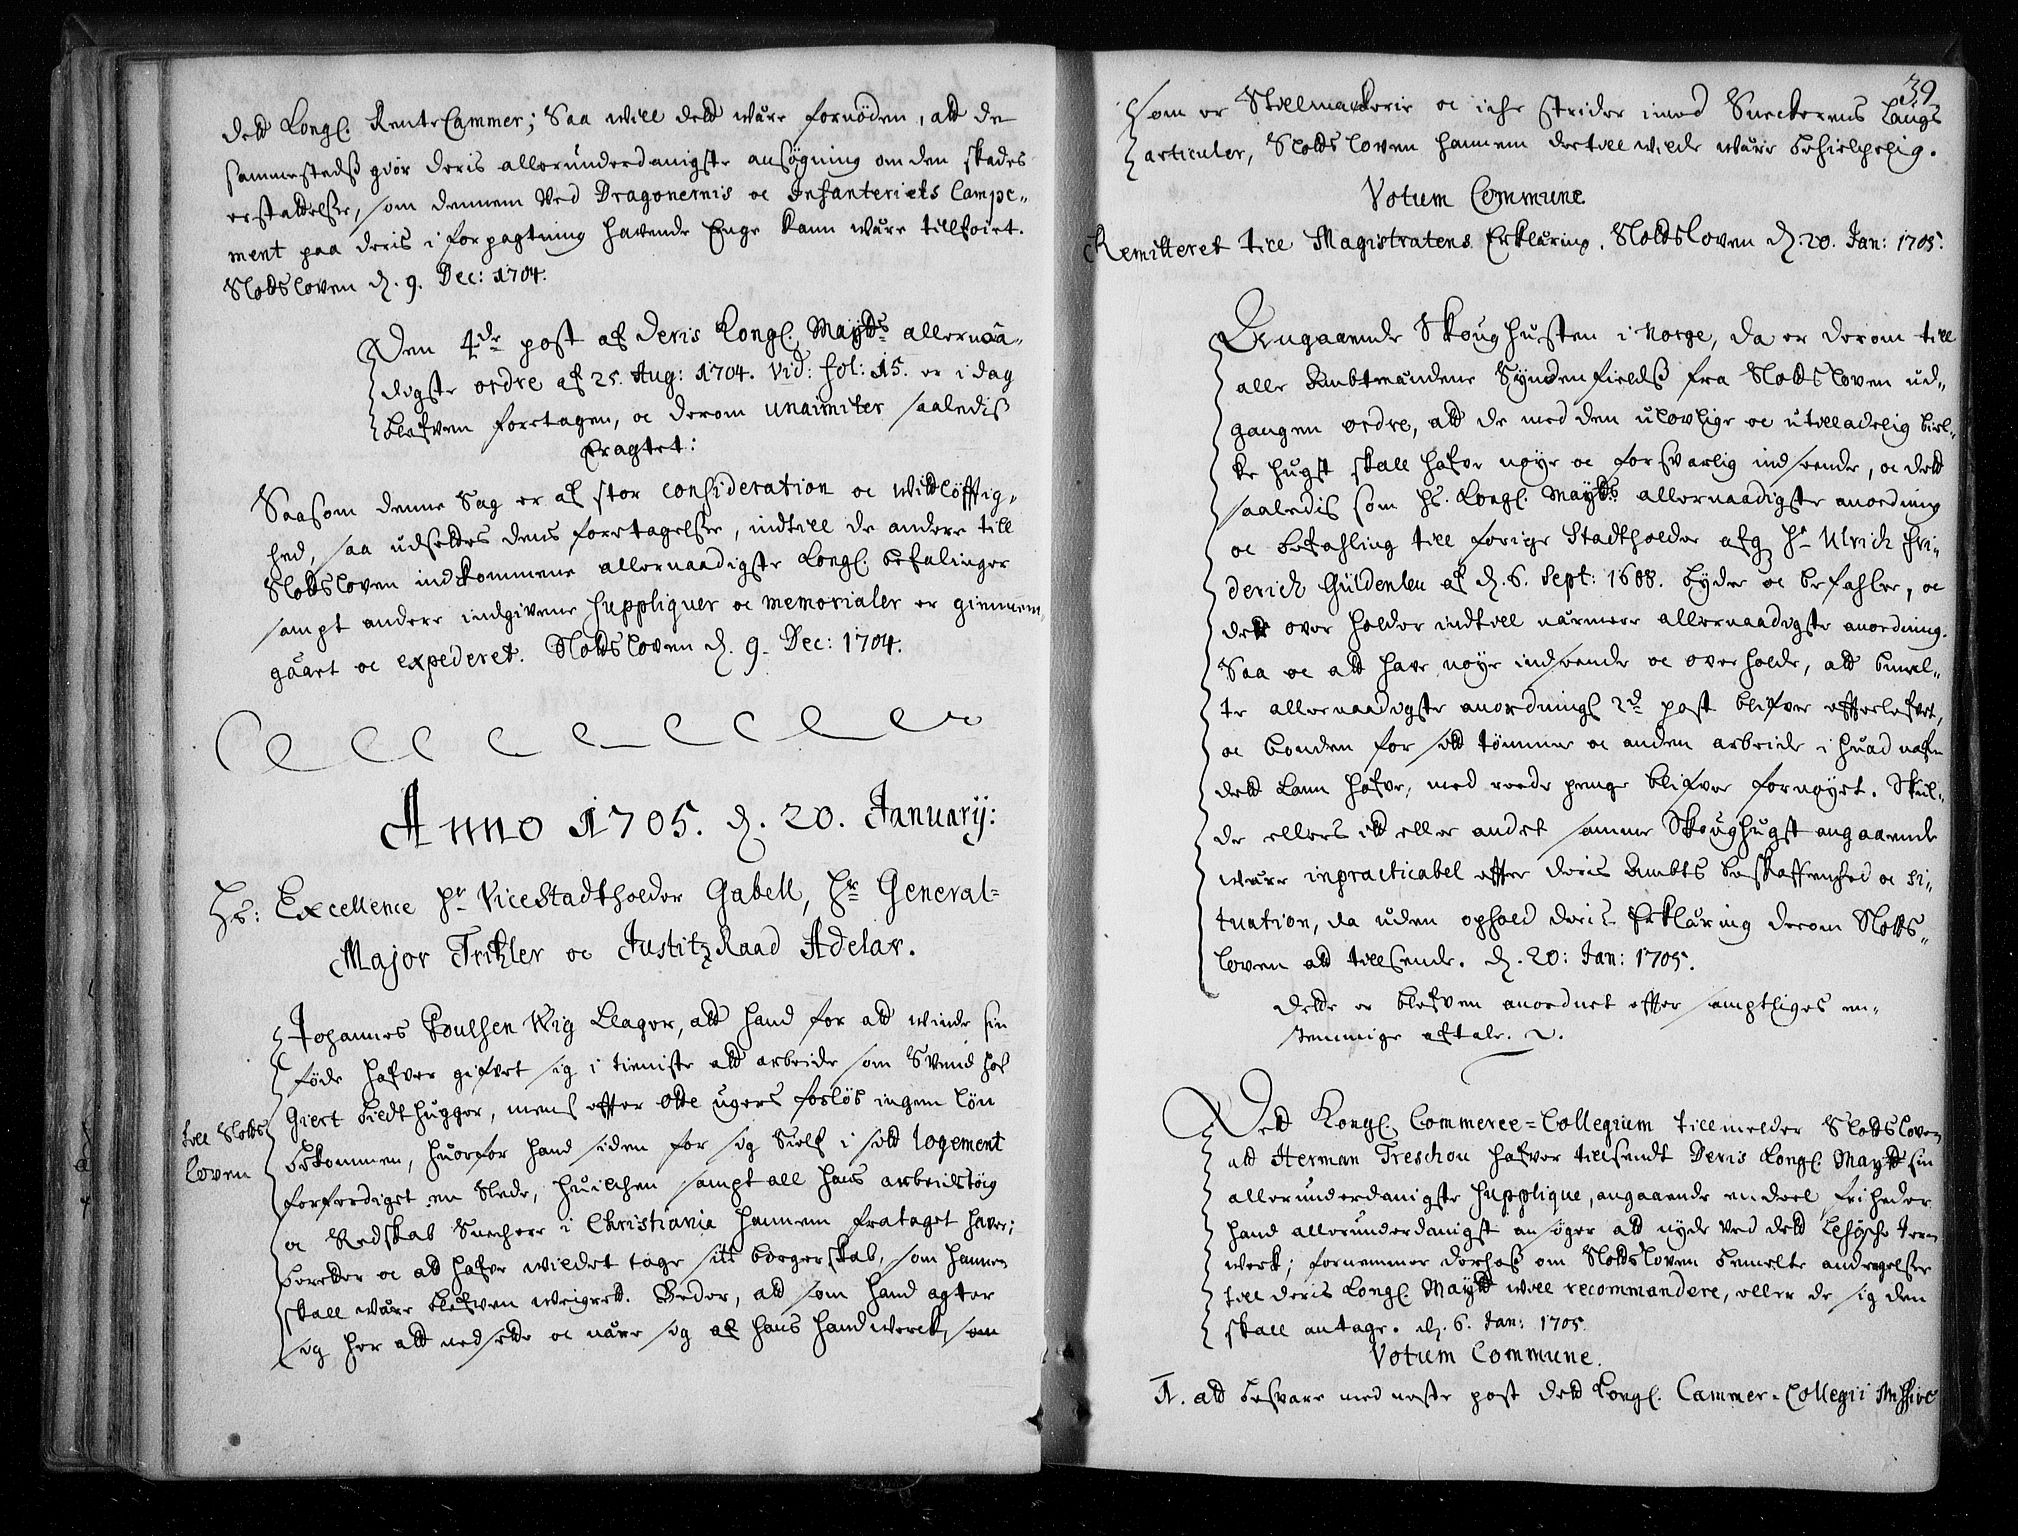 dett Kongl. RenteCammer; Saa will dett være fornøden, att de
sammestedß giør deris allerunderdanigste ansøgning om den skades
erstattelse, som dennem ved Dragonernis oc Infanteriets Campe-
ment paa deris i forpagtning havende Enge kann være tillføiet.
Slottsloven d. 9. Dec: 1704.
Den 4de post af Deris Kongl. Maytts allernaa-
digste ordre af 25. Aug: 1704. Vid: fol: 15. er i dag
blefven foretagen, oc derom unanimiter saaledis
Eragtet:
Saasom denne Sag er af stor consideration oc vidtløfftig-
hed, saa udsettes dens foretagelse, indtill de andere till
Slottsloven indkommene allernaadigste Kongl. befalinger
sampt andere indgivene Suppliquer oc memorialer er giennem-
gaaet oc expederet. Slottsloven d. 9. Dec: 1704.
Anno 1705. d. 20. January:
Hs: Excellence Hr ViceStadtholder Gabell, Hr General-
Major Tritzler oc JustitzRaad Adelar.
Johannes Poulsen Wig klager, att hand for att winde sin
føde hafver gifvet sig i tieniste att arbeide som Svend hos
Giert Bildthugger, mens effter otte ugers forløb ingen løn
till Slotts
loven
bekommen, huorfor hand siden for sig Sielf i sitt logement
forferdiget en Slede, huilchen sampt all hans arbeidstøig
oc Redskab Snecherne i Christiania hannem frataget haver;
beretter oc att hafve villet tage sitt borgerskab, som hannem
skall være blefven weigret. Beder, att som hand agter
sig her att nedsette oc nære sig af hans handwerck, som
39
som er Stellmackerie oc iche strider imod Sneckerens Laugs
articuler, Slottsloven hannem dertill wilde være behielpelig.
Votum Commune
Remitteret till Magistratens Erklæring. Slottsloven d. 20. Jan: 1705.
Angaaende Skoughusten i Norge, da er derom till
alle Ambtmændene Syndenfieldß fra Slottsloven ud-
gangen ordre, att de med den ulovlige oc utilladelig biel-
ke hugst skall hafve nøye oc forsvarlig indseende, oc dett
saaledis som Hs. Kongl. Maytts allernaadigste anordning
oc befahling till forige Stadtholder afg. Hr Ulrich Fri-
derich Güldenleu af d. 6. Sept: 1688. byder oc befahler, oc
dett over holder indtill nærmere allernaadigste anordning.
Saa oc att have nøye indseende oc overholde, att bemel-
te allernaadigste anordningl 2de post blifver effterlefvet,
oc bonden for sitt tømmer oc anden arbeide i huad nafn
dett kann hafve, med reede penge blifver fornøyet. Skul-
de ellers itt eller andet samme Skoughugst angaaende
være inpracticabel effter deris Ambts beskaffenhed oc si-
tuation, da uden ophold deris Erklæring derom Slotts-
loven att tillsende. d. 20: Jan: 1705.
Dette er blefven anordnet effter samptliges en-
stemmige aftale.
Dett Kongl. Commerce-Collegium tillmelder Slottsloven
att Herman Treschou hafver tillsendt Deris Kongl. Maytt sin
allerunderdanigste Supplique, angaaende en deel friheder
hand allerunderdanigst ansøger att nyde ved dett Lesøsche Jern
werk; fornemmer derhoß om Slottsloven bemelte andragelse
till deris Kongl. Maytt will recommandere, eller de sig den
skall antage. d. 6. Jan: 1705.
Votum Commune.
1. att besvare med neste post dett Kongl. Cammer-Collegii Missive